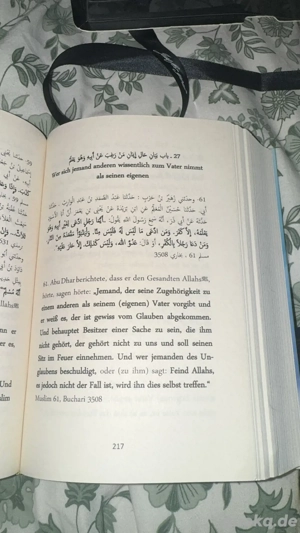 27 ـ باب بَيَانِ حَالِ إِيْمَانِ مَنْ رَغِبَ عَنْ أَبِيهِ وَهُوَ يَعْلَمُ
Wer sich jemand anderen wissentlich zum Vater nimmt
als seinen eigenen
61- وحدثني زُهَيْرُ بْنُ حَرْبٍ، حَدَّثَنَا عَبْدُ الصَّمَدِ بْنُ عَبْدِ الْوَارِثِ، حَدَّثَنَا
أَبِي، حَدَّثَنَا حُسَيْنٌ الْمُعَلِّمُ عَنِ ابْنِ بُرَيْدَةَ عَنْ يَحْيَى بْنِ يَعْمَرَ أَنَّ أَبَا الأَسْوَدِ
رَسُولَ اللهِ ﷺ يَقُولُ: لَيْسَ مِنْ رَجُلٍ
إِلاَّ كَفَرَ، وَمَنْ
وَمَنْ دَعَا رَجُلاً بِالْكُفْرِ، أَوْ قَالَ: عَدُوَّ اللهِ، وَلَيْسَ كَذَلِكَ، إِلاَّ حَارَ عَلَيْهِ
مسلم 61 ـ بخاري 3508
61. Abu Dhar berichtete, dass er den Gesandten Allahsﷺ,
hörte, sagen hörte: „Jemand, der seine Zugehörigkeit zu
einem anderen als seinem (eigenen) Vater vorgibt und
er weiß es, der ist gewiss vom Glauben abgekommen.
Und behauptet Besitzer einer Sache zu sein, die ihm
nicht gehört, der gehört nicht zu uns und soll seinen
Sitz im Feuer einnehmen. Und wer jemanden des Un-
glaubens beschuldigt, oder (zu ihm) sagt: Feind Allahs,
es jedoch nicht der Fall ist, wird ihn dies selbst treffen."
Muslim 61, Buchari 3508
217
Und
slim
ka.de